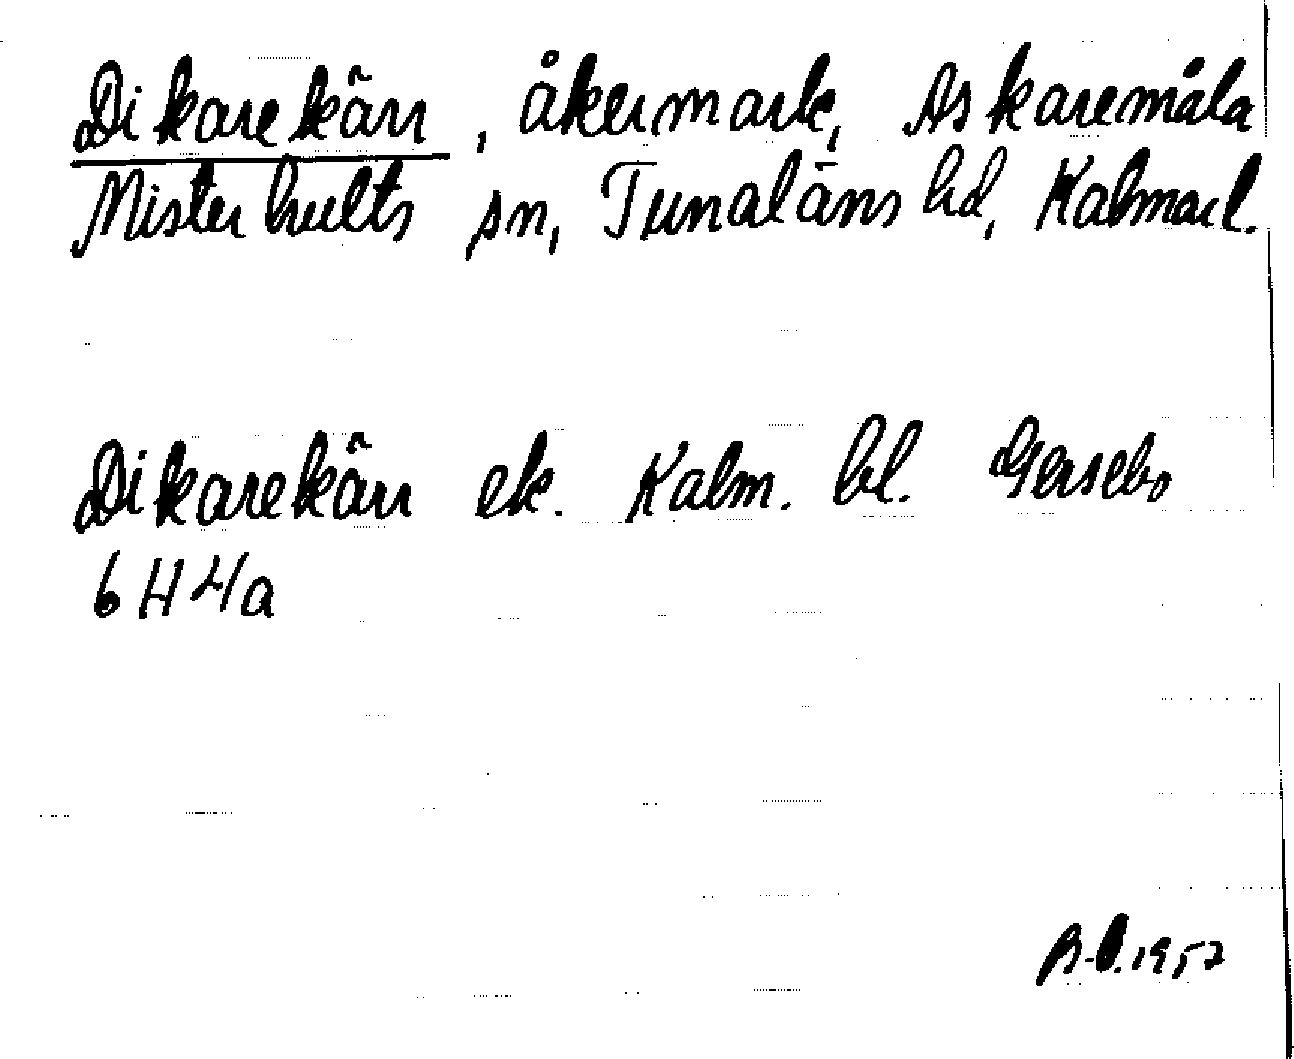 Dikarekärr, åkermark, Askaremåla
Misterhults sn, Tunaläns hd, Kalmarl.
Dikarekärr ek. Kalm. bl. Gersebo
6 H 4/a
B-l. 1957